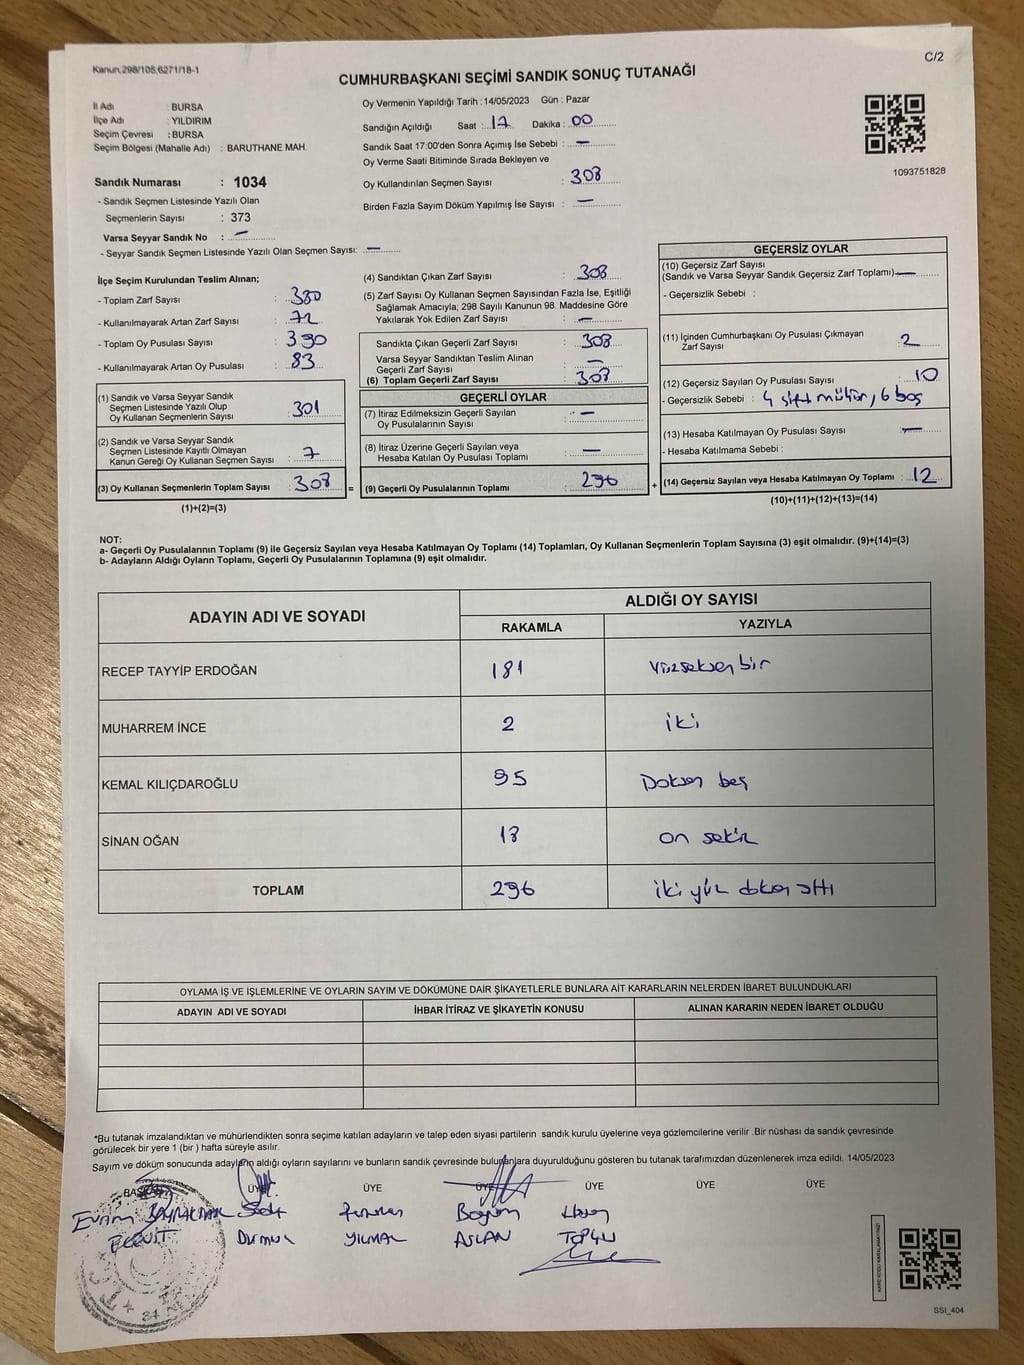 Kanun.298/105,6271/18-1
C/2
CUMHURBAŞKANI SEÇİMİ SANDIK SONUÇ TUTANAĞI
İl Adı : BURSA
İlçe Adı : YILDIRIM
Seçim Çevresi : BURSA
Seçim Bölgesi (Mahalle Adı) : BARUTHANE MAH.
Sandık Numarası : 1034
- Sandık Seçmen Listesinde Yazılı Olan
Seçmenlerin Sayısı : 373
Varsa Seyyar Sandık No : —
- Seyyar Sandık Seçmen Listesinde Yazılı Olan Seçmen Sayısı: —
Oy Vermenin Yapıldığı Tarih : 14/05/2023 Gün : Pazar
Sandığın Açıldığı Saat : 17 Dakika : 00
Sandık Saat 17:00'den Sonra Açımış İse Sebebi : —
Oy Verme Saati Bitiminde Sırada Bekleyen ve
Oy Kullandırılan Seçmen Sayısı : 308
Birden Fazla Sayım Döküm Yapılmış İse Sayısı : —
1093751828
İlçe Seçim Kurulundan Teslim Alınan;
- Toplam Zarf Sayısı : 380
- Kullanılmayarak Artan Zarf Sayısı : 72
- Toplam Oy Pusulası Sayısı : 390
- Kullanılmayarak Artan Oy Pusulası : 83
(1) Sandık ve Varsa Seyyar Sandık
Seçmen Listesinde Yazılı Olup
Oy Kullanan Seçmenlerin Sayısı : 301
(2) Sandık ve Varsa Seyyar Sandık
Seçmen Listesinde Kayıtlı Olmayan
Kanun Gereği Oy Kullanan Seçmen Sayısı : 7
(3) Oy Kullanan Seçmenlerin Toplam Sayısı : 308 =
(1)+(2)=(3)
(4) Sandıktan Çıkan Zarf Sayısı : 308
(5) Zarf Sayısı Oy Kullanan Seçmen Sayısından Fazla İse, Eşitliği
Sağlamak Amacıyla; 298 Sayılı Kanunun 98. Maddesine Göre
Yakılarak Yok Edilen Zarf Sayısı : —
Sandıkta Çıkan Geçerli Zarf Sayısı : 308
Varsa Seyyar Sandıktan Teslim Alınan
Geçerli Zarf Sayısı : —
(6) Toplam Geçerli Zarf Sayısı : 308
GEÇERLİ OYLAR
(7) İtiraz Edilmeksizin Geçerli Sayılan
Oy Pusulalarının Sayısı : —
(8) İtiraz Üzerine Geçerli Sayılan veya
Hesaba Katılan Oy Pusulası Toplamı : —
(9) Geçerli Oy Pusulalarının Toplamı : 296 +
GEÇERSİZ OYLAR
(10) Geçersiz Zarf Sayısı
(Sandık ve Varsa Seyyar Sandık Geçersiz Zarf Toplamı) : —
- Geçersizlik Sebebi :
(11) İçinden Cumhurbaşkanı Oy Pusulası Çıkmayan
Zarf Sayısı : 2
(12) Geçersiz Sayılan Oy Pusulası Sayısı : 10
- Geçersizlik Sebebi : 4 çift mühür, 6 boş
(13) Hesaba Katılmayan Oy Pusulası Sayısı : —
- Hesaba Katılmama Sebebi :
(14) Geçersiz Sayılan veya Hesaba Katılmayan Oy Toplamı : 12
(10)+(11)+(12)+(13)=(14)
NOT:
a- Geçerli Oy Pusulalarının Toplamı (9) ile Geçersiz Sayılan veya Hesaba Katılmayan Oy Toplamı (14) Toplamları, Oy Kullanan Seçmenlerin Toplam Sayısına (3) eşit olmalıdır. (9)+(14)=(3)
b- Adayların Aldığı Oyların Toplamı, Geçerli Oy Pusulalarının Toplamına (9) eşit olmalıdır.
ADAYIN ADI VE SOYADI ALDIĞI OY SAYISI
RAKAMLA YAZIYLA
RECEP TAYYİP ERDOĞAN 181 Yüzseksenbir
MUHARREM İNCE 2 iki
KEMAL KILIÇDAROĞLU 95 Doksan beş
SİNAN OĞAN 18 on sekiz
TOPLAM 296 iki yüz doksan altı
OYLAMA İŞ VE İŞLEMLERİNE VE OYLARIN SAYIM VE DÖKÜMÜNE DAİR ŞİKAYETLERLE BUNLARA AİT KARARLARIN NELERDEN İBARET BULUNDUKLARI
ADAYIN ADI VE SOYADI İHBAR İTİRAZ VE ŞİKAYETİN KONUSU ALINAN KARARIN NEDEN İBARET OLDUĞU
*Bu tutanak imzalandıktan ve mühürlendikten sonra seçime katılan adayların ve talep eden siyasi partilerin sandık kurulu üyelerine veya gözlemcilerine verilir .Bir nüshası da sandık çevresinde
görülecek bir yere 1 (bir ) hafta süreyle asılır.
Sayım ve döküm sonucunda adayların aldığı oyların sayılarını ve bunların sandık çevresinde bulunanlara duyurulduğunu gösteren bu tutanak tarafımızdan düzenlenerek imza edildi. 14/05/2023
BAŞKAN ÜYE ÜYE ÜYE ÜYE ÜYE ÜYE
Evrim BAYRAKTAR
YILMAZ ASLAN
SSİ_404